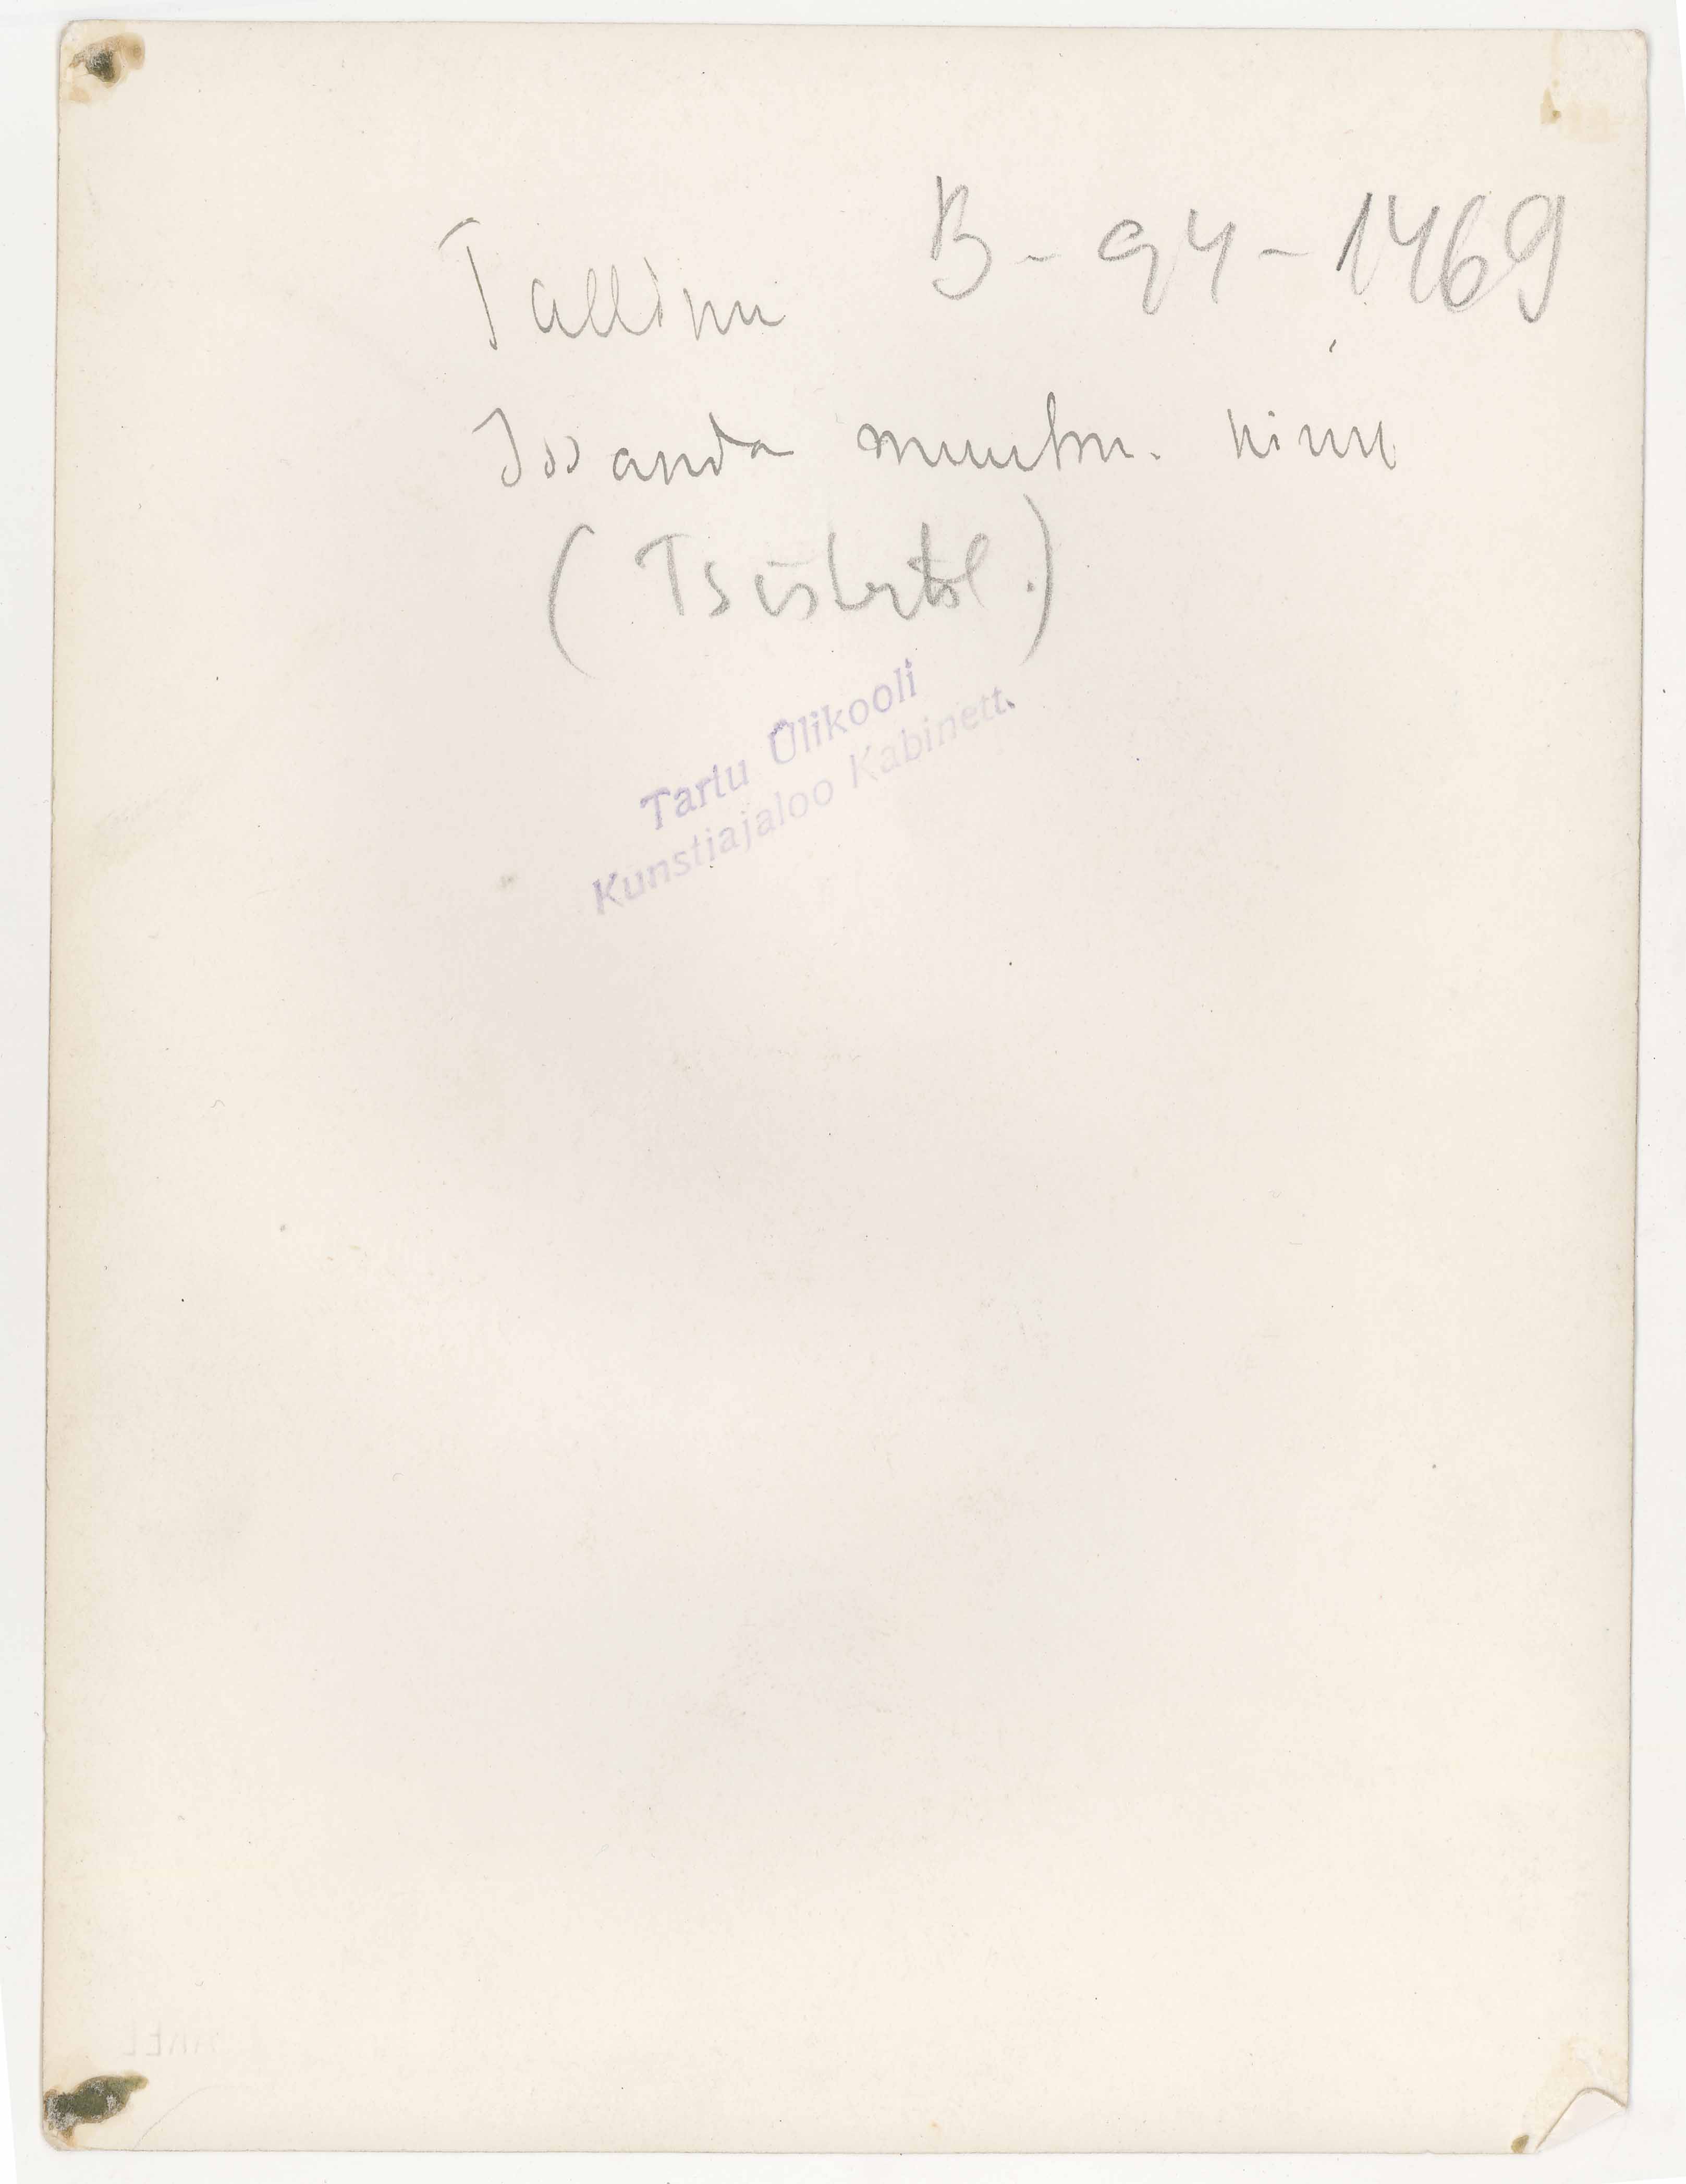 B-94-1469
Tallinn
Issanda muutm. kirik
(Tsistertsl.)
Tartu Ülikooli
Kunstiajaloo Kabinett.